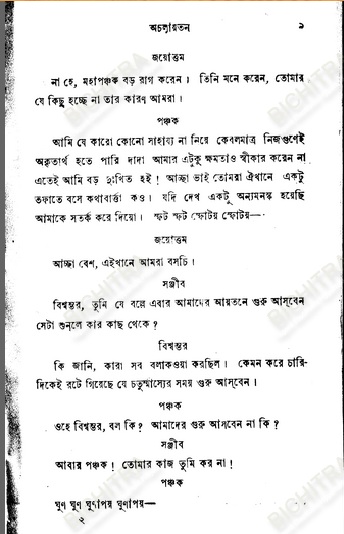 অচলায়তন ৯
জয়োত্তম
না হে, মহাপঞ্চক বড় রাগ করেন। তিনি মনে করেন, তোমার
যে কিছু হচ্ছে না তার কারণ আমরা।
পঞ্চক
আমি যে কারো কোনো সাহায্য না নিয়ে কেবলমাত্র নিজগুণেই
অকৃতার্থ হতে পারি দাদা আমার এটুকু ক্ষমতাও স্বীকার করেন না
এতেই আমি বড় দুঃখিত হই! আচ্ছা ভাই তোমরা ঐখানে একটু
তফাতে বসে কথাবার্ত্তা কও। যদি দেখ একটু অন্যমনস্ক হয়েছি
আমাকে সতর্ক করে দিয়ো। স্ফট স্ফট স্ফোটয় স্ফোটয়—
জয়োত্তম
আচ্ছা বেশ, এইখানে আমরা বসচি।
সঞ্জীব
বিশ্বম্ভর, তুমি যে বল্লে এবার আমাদের আয়তনে গুরু আসবেন
সেটা শুনলে কার কাছ থেকে?
বিশ্বম্ভর
কি জানি, কারা সব বলাকওয়া করছিল। কেমন করে চারি-
দিকেই রটে গিয়েছে যে চতুর্ম্মাস্যের সময় গুরু আসবেন।
পঞ্চক
ওহে বিশ্বম্ভর, বল কি? আমাদের গুরু আসবেন না কি?
সঞ্জীব
আবার পঞ্চক! তোমার কাজ তুমি কর না!
পঞ্চক
ঘুণ ঘুণ ঘুণাপয় ঘুণাপয়—
২
BICHITRA